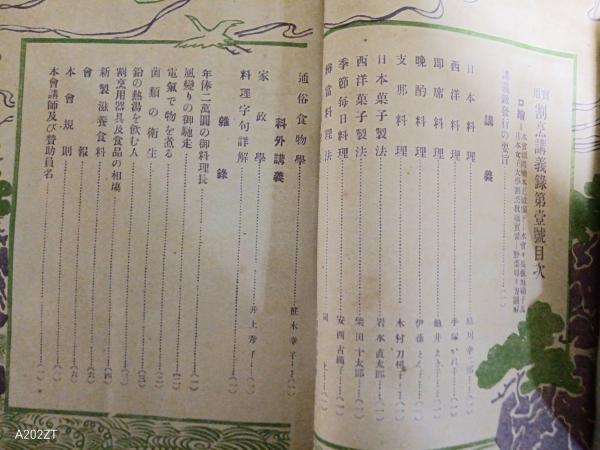 實用 割烹講義錄第壹號目次
口繪
講義錄發行の要旨……(一)
講義
日本料理
西洋料理……手塚かね子…(一)
即席料理……龜井まき子…(一)
晚酌料理……伊藤
支那料理……木村
日本菓子製法……岩水直太郎…(一)
西洋菓子製法……柴田十太郎…(一)
季節每日料理……安西古滿子…(一)
辨當料理法……同 上…(一)
通俗食物學……幸子…(一)
科外講義
家政學……井上秀子…(一)
料理字句詳解……(一)
雜錄
年俸二萬圓の御料理長……(一)
風變りの御馳走……(一)
電氣で物を煮る……(二)
菌類の衞生……(二)
鉛の熱湯を飮む人……(三)
割烹用器具及食品の相塲……(三)
新製滋養食料……(四)
會報……(五)
本會規則……(六)
本會講師及び贊助員名……(一)
A202ZT